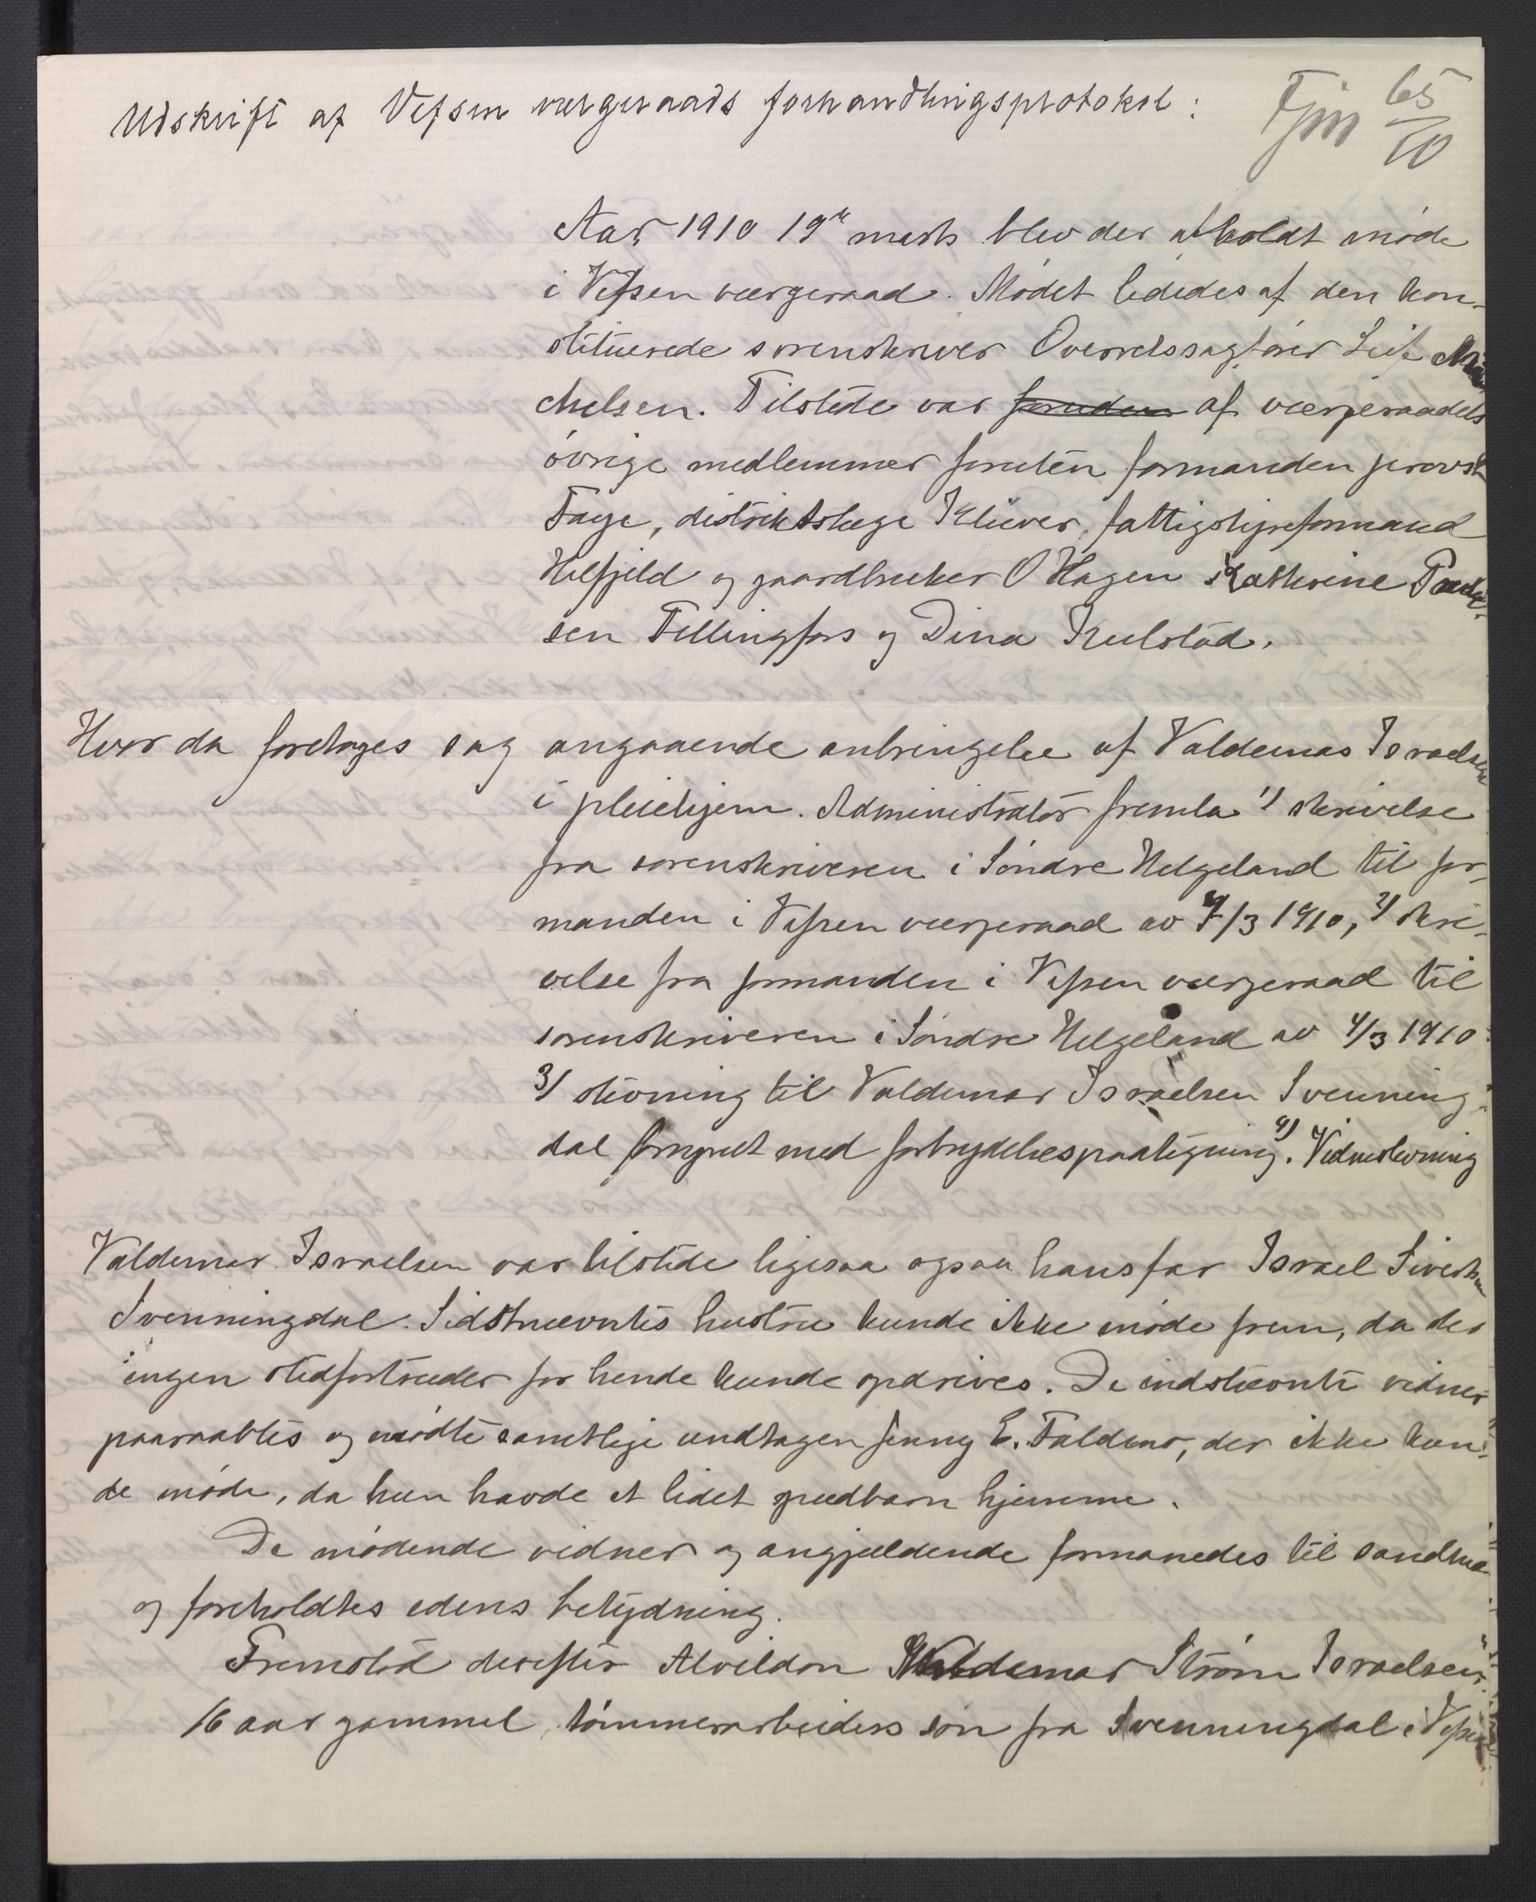 Udskrift af Vefsen værgeraads forhandlingsprotokol:
Fjm 65/10
Aar 1910 19de marts blev der afholdt møde
i Vefsen værgeraad. Mødet lededes af den kon-
stituerede sorenskriver Overretssagfører Leif Mi-
chelsen. Tilstede var foruden af værgeraadets
øvrige medlemmer foruten formanden provst
Faye, distriktslæge Klüver, fattigstyreformand
Helfjeld og gaardbruker O Hagen Kathrine Peder-
sen Fellingfors og Dina Kulstad.
Hvor da foretoges sag angaaende anbringelse af Valdemar Israelsen
i pleiehjem. Administrator fremla 1/ skrivelse
fra sorenskriveren i Søndre Helgeland til for-
manden i Vefsen værgeraad av 7/3 1910, 2/ skri-
velse fra formanden i Vefsen værgeraad til
sorenskriveren i Søndre Helgeland av 4/3 1910
3/ stevning til Valdemar Israelsen Svenning-
dal forsynet med forbrydelsespaategning. 4) Vidnestevning
Valdemar Israelsen var tilstede ligesaa ogsaa hans far Israel Sivertsen
Svenningdal. Sidstnævntes hustru kunde ikke møde frem, da der
ingen stedfortræder for hende kunde opdrives. De indstevnte vidner
paaraabtes og mødte samtlige undtagen Jenny E. Faldmo, der ikke kun-
de møde, da hun havde et lidet spædbarn hjemme.
De mødende vidner og angjældende formanedes til sandhed
og foreholdtes edens betydning.
Fremstod derefter Alvildon Valdemar Strøm Israelsen
16 aar gammel, tømmerarbeiders søn fra Svenningdal i Vefsen